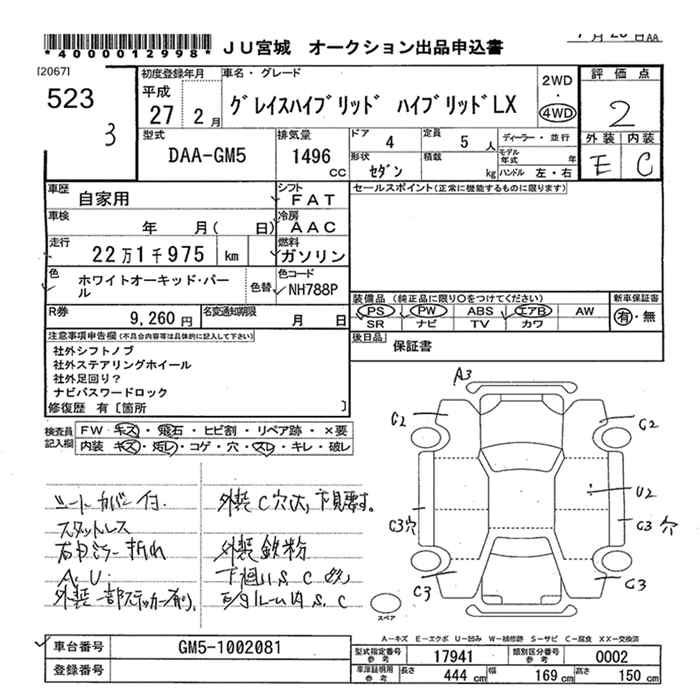 *4000012998* JU宮城 オークション出品申込書
[2067]
523
3
初度登録年月
平成
27 2 月
車名・グレード
グレイスハイブリッド ハイブリッドLX
2WD
4WD
評価点
2
外装 内装
E C
型式
DAA-GM5
排気量
1496 CC
ドア 4
定員 5 人
形状 セダン
積載 kg
ディーラー・並行
モデル年式 年
ハンドル 左・右
車歴 自家用
シフト FAT
車検 年 月( 日)
冷房 AAC
走行 22万1千975 km
燃料 ガソリン
色 ホワイトオーキッド・パール
色替
色コード NH788P
R券 9,260円
名変通知期限 月 日
セールスポイント(正常に機能するものに限ります)
装備品 (純正品に限り○をつけてください)
PS PW ABS エアB AW
SR ナビ TV カワ
新車保証書
有・無
後日品 保証書
注意事項申告欄(不具合内容等は具体的に記入して下さい)
社外シフトノブ
社外ステアリングホイール
社外足回り?
ナビパスワードロック
修復歴 有 [箇所 ]
検査員記入欄
FW キズ・飛石・ヒビ割・リペア跡・×要
内装 キズ・汚レ・コゲ・穴・スレ・キレ・破レ
シートカバー付.
スタットレス
右ドミラー折れ
A.U.
外装一部ステッカー有り.
外装C穴大,下見要す.
外装鉄粉
下廻りS.C
ルーム内S.C
A3
G2
G2
C3穴
U2
G3 穴
C3
C3
スペア
A-キズ E-エクボ U-凹み W-補修跡 S-サビ C-腐食 XX-交換済
車台番号 GM5-1002081
登録番号
型式指定番号 参考 17941
類別区分番号 参考 0002
車庫証明用 参考
長さ 444 cm
幅 169 cm
高さ 150 cm